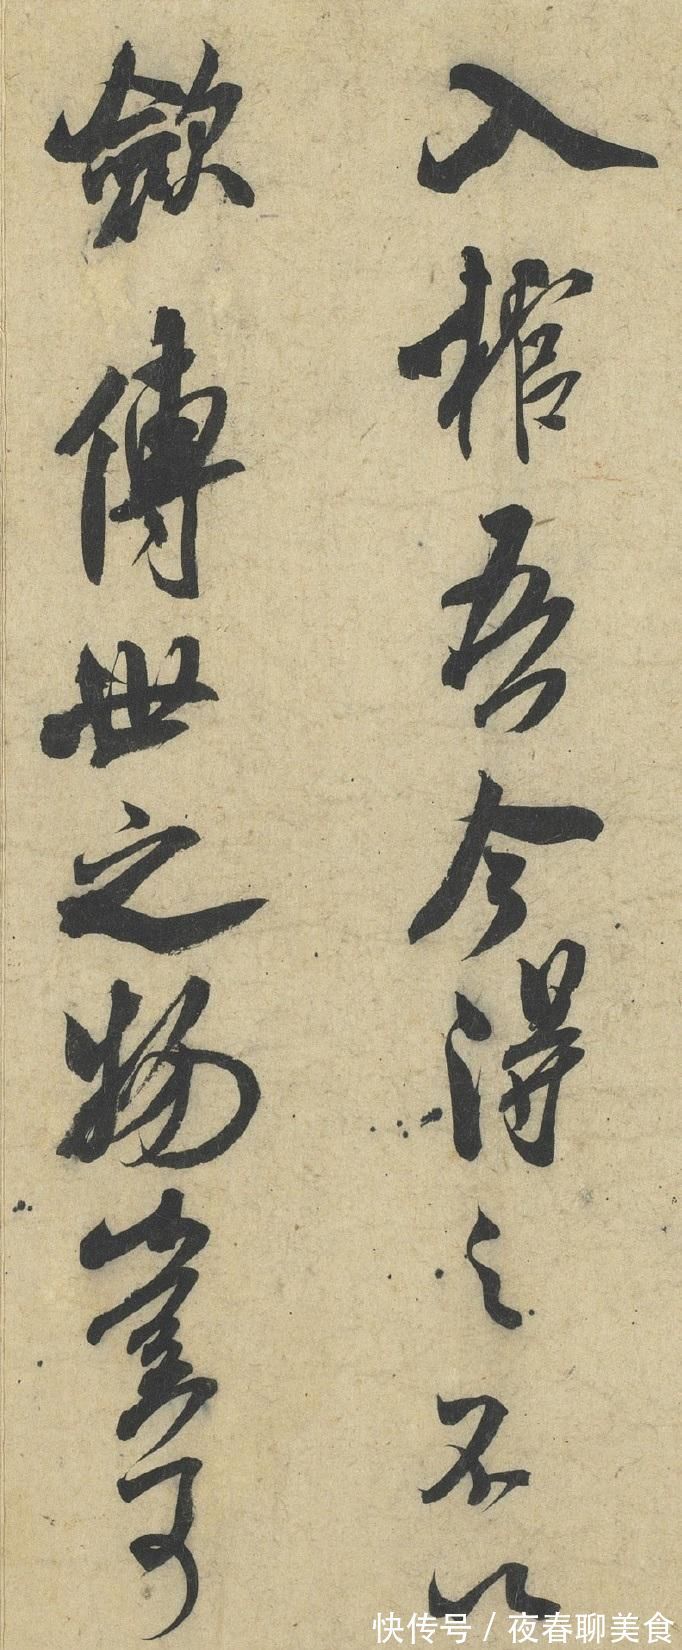 入棺吾今得之不以
歛傳世之物豈可
快传号 / 夜春聊美食